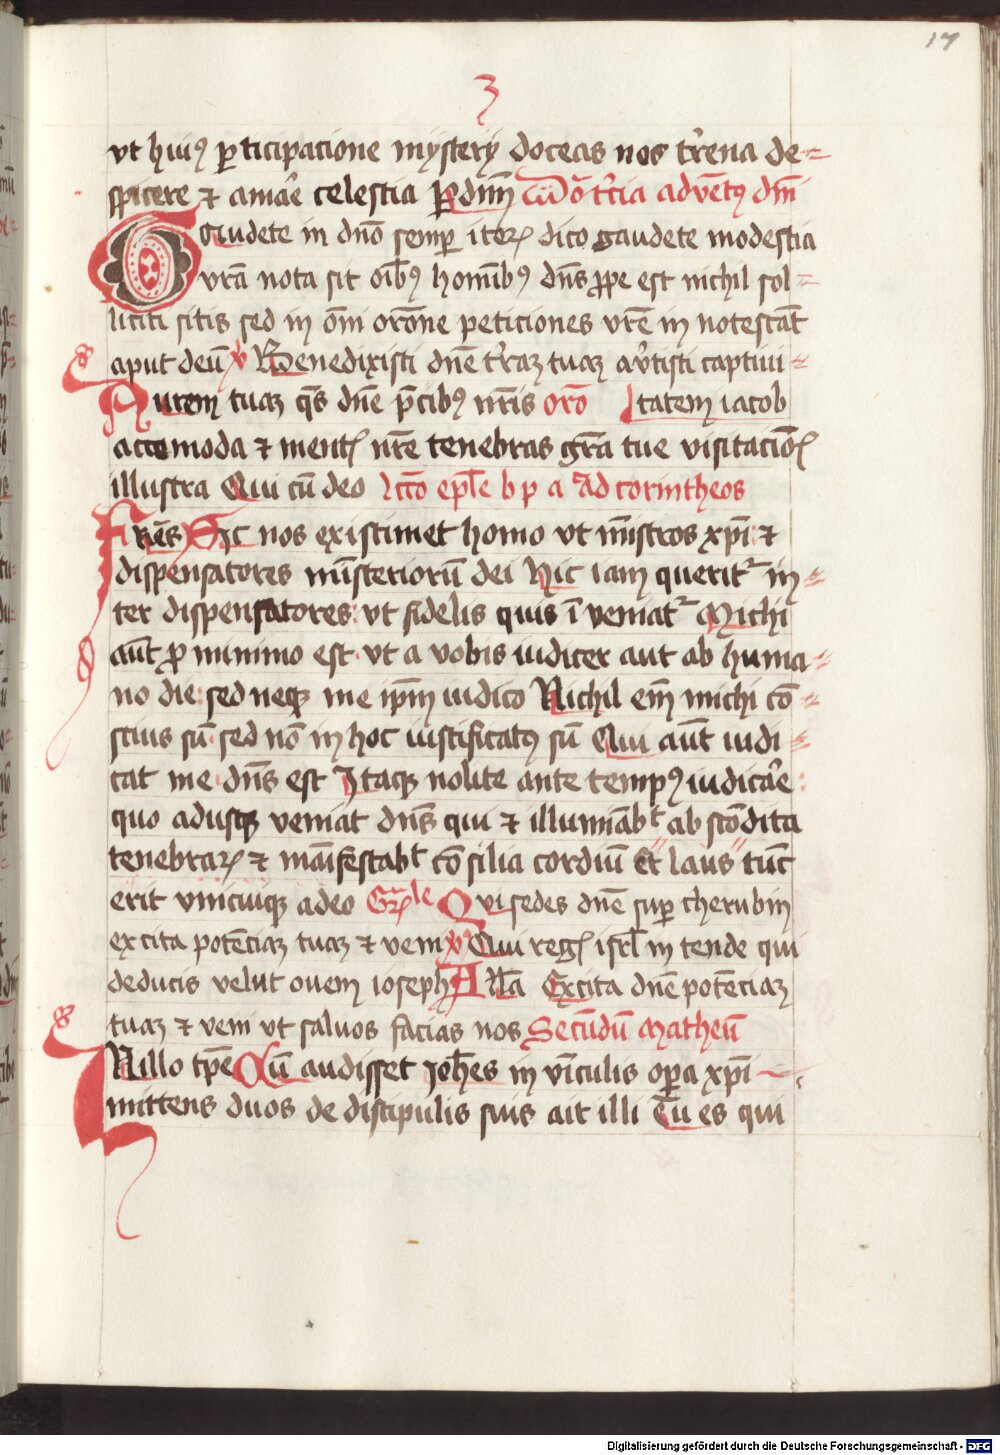 17
3
vt huiꝰ ꝑticipacione mystery doceas nos tr̄ena de-
spicere ⁊ amāe celestia ꝑ dnm̄ Do tr̄cia advētꝰ dm̄
Gaudete in dn̄o semꝑ iteꝝ dico gaudete modestia
vr̄a nota sit oībꝰ homībꝰ dn̄s ꝓpe est nichil sol-
liciti sitis sed in om̄i orōne peticiones vr̄e in notescāt
aput deū ꝟ Benedixisti dn̄e tr̄aꝫ tuaꝫ av̄tisti captiui-
Aurem tuaꝫ qs̄ dn̄e p̄cibꝰ nr̄is oro tatem iacob
accomoda ⁊ mentꝭ nr̄e tenebras gr̄a tue visitacōꝭ
illustra Qui cū deo lcc̄o epl̄e b p a ad corintheos
Frēs Sic nos existimet homo vt mīstros xp̄i ⁊
dispensatores mīsteriorū dei Hic iam querit᷑ in-
ter dispensatores: vt fidelis quis ī veniat᷑ Michi
aūt ꝓ minimo est vt a vobis iudicer aut ab huma-
no die: sed neqꝫ me ip̄m iudico Nichil em̄ michi cō-
scius sū sed nō in hoc iustificatꝰ sū Qui aūt iudi-
cat me dn̄s est Itaqꝫ nolite ante tempꝰ iudicāe:
quo adusqꝫ veniat dn̄s qui ⁊ illumīabt ab scōdita
tenebraꝝ ⁊ maīfestabt cōsilia cordiū Et laus tūc
erit vnicuiqꝫ a deo Grꝭle Qui sedes dn̄e suꝑ cherubin
excita potēciaꝫ tuaꝫ ⁊ veni ꝟ Qui regꝭ isrl̄ in tende qui
deducis velut ouem ioseph All̄a Excita dn̄e potēciaꝫ
tuaꝫ ⁊ veni vt saluos facias nos Secūdū Matheū
In illo tp̄e Cū audisset Joh̄es in vīculis oꝑa xp̄i
mittens duos de discipulis suis ait illi Tu es qui
Digitalisierung gefördert durch die Deutsche Forschungsgemeinschaft - DFG